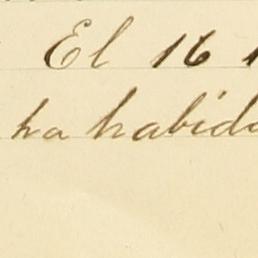 El 16
ha habido